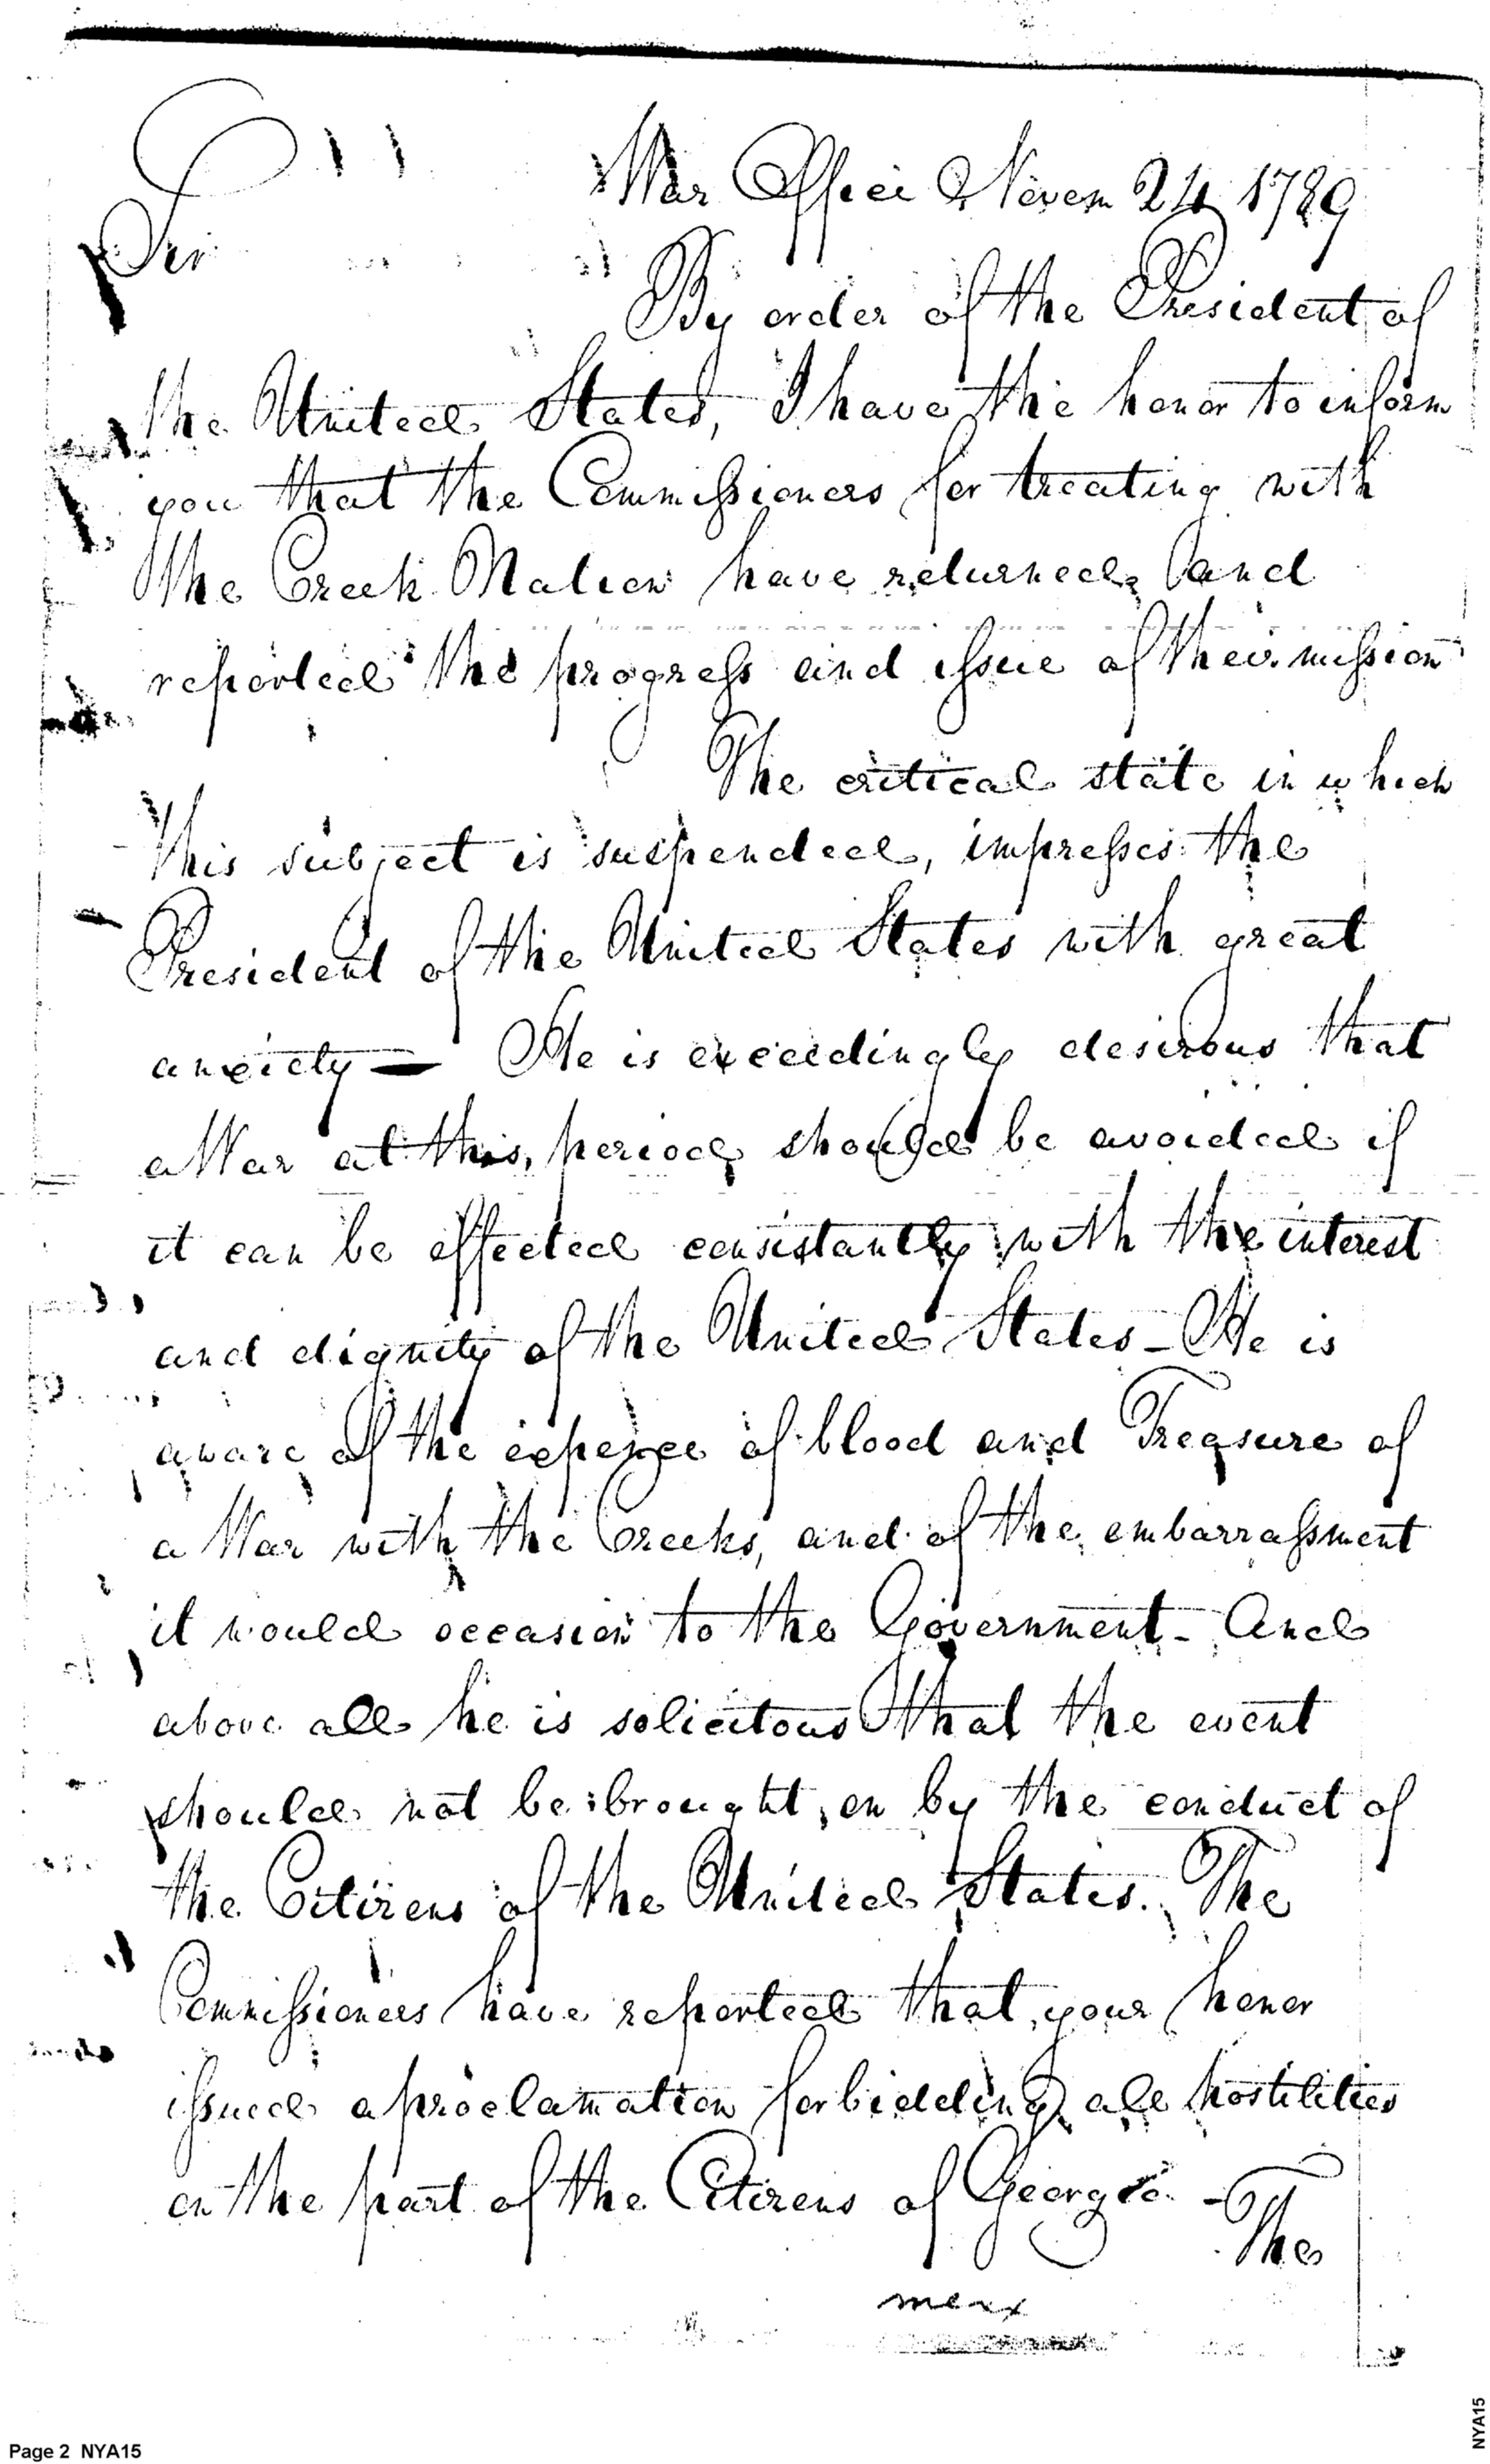 War Office Novem 24 1789
Sir
By order of the President of
the United States, I have the honor to inform
you that the Commissioners for treating with
the Creek Nation have returned, and
reported the progress and issue of their mission
The critical state in which
this subject is suspended, impresses the
President of the United States with great
anxiety — He is exceedingly desirous that
a War at this period should be avoided if
it can be effected consistantly with the interest
and dignity of the United States - He is
aware of the expence of blood and Treasure of
a War with the Creeks, and of the embarrassment
it would occasion to the Government - And
above all he is solicitous that the event
should not be brought on by the conduct of
the Citizens of the United States. The
Commissioners have reported that your honor
issued a proclamation forbidding all hostilities
on the part of the Citizens of Georgia - The
Page 2 NYA15
NYA15